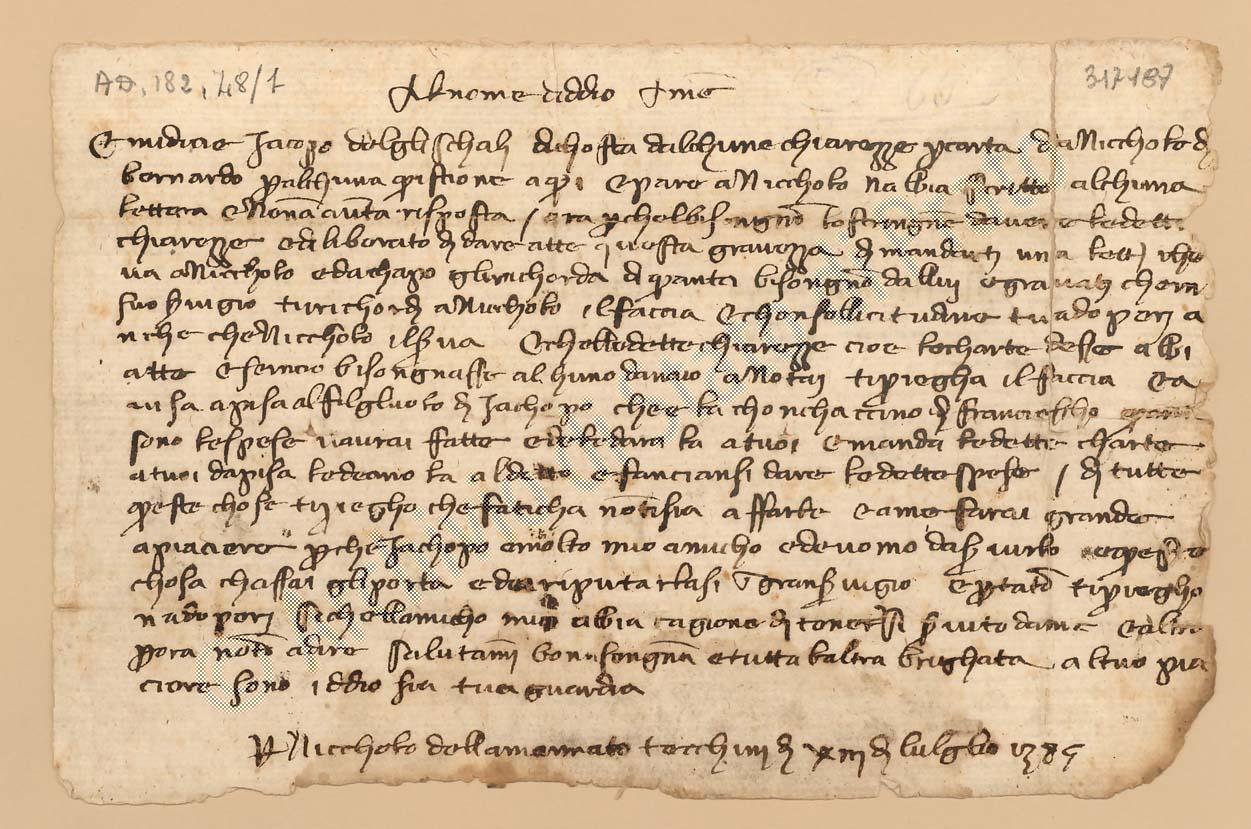 AD, 182, 48/1
317187
Al nome di ddio Amē
E mi dicie Jacopo delgli schali di chosta dalchune chiarezze p carta da Niccholo di
bernardo p alchuna quistione a qui e pare a Niccholo n abbia scritto alchuna
lettera e nonn a auta risposta / ora p chel bisongno lo stringne d avere le dett
chiarezze e diliberato di dare a tte questa gravezza di mandarti una lett
va a Niccholo e da chapo gli richorda di quanto bisongno da llui e gravati che in
suo svigio tu richordi a Niccholo il faccia e chon sollicitudine tu adoperi a
nche che Niccholo il sva E che lle dette chiarezze cioe le charte desse a lbi
a tte e se nicio bisongnasse alchuno danaio a Notai ti priegha il faccia e a
visa a pisa al filgliuolo di Jachopo che e la chon chaccino di franciescho
sono le spese v avrai fatte e de le dara la a tuoi e manda le dette charte
a tuoi da pisa le deano la al detto e faciansi dare le dette spese / di tutte
queste chose ti priegho che faticha non ti sia a ffarle e a me farai grande
a piaciere p che Jachopo e molto mio amicho ed e uomo da svirlo e
chosa ch assai gli porta e de riputarlasi gran svigio e p tato ti priegho
n adoperi si che ll amicho mio abbia cagione di tenersi svito da me
p ora non to a dire salutami bonisengna e tutta l altra brighata al tuo pia
ciere sono iddio sia tua guardia
P Niccholo dell amannato tecchini di xiii di lulglio 1385